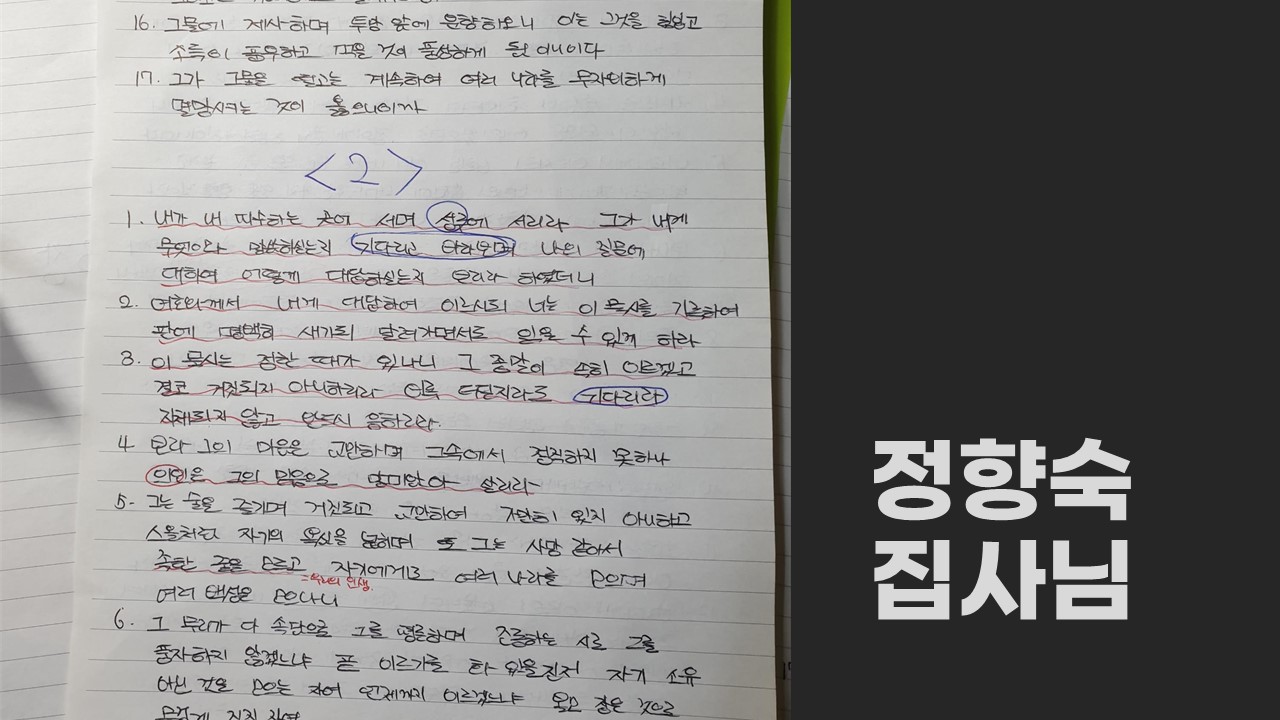 16. 그물에 제사하며 투망 앞에 분향하오니 이는 그것을 힘입고
소득이 풍부하고 먹을 것이 풍성하게 됨이니이다
17. 그가 그물을 떨고는 계속하여 여러 나라를 무자비하게
멸망시키는 것이 옳으니이까
<2>
1. 내가 내 파수하는 곳에 서며 성루에 서리라 그가 내게
무엇이라 말씀하실는지 기다리고 바라보며 나의 질문에
대하여 어떻게 대답하실는지 보리라 하였더니
2. 여호와께서 내게 대답하여 이르시되 너는 이 묵시를 기록하여
판에 명백히 새기되 달려가면서도 읽을 수 있게 하라
3. 이 묵시는 정한 때가 있나니 그 종말이 속히 이르겠고
결코 거짓되지 아니하리라 비록 더딜지라도 기다리라
지체되지 않고 반드시 응하리라.
4 보라 그의 마음은 교만하며 그속에서 정직하지 못하나
의인은 그의 믿음으로 말미암아 살리라
5. 그는 술을 즐기며 거짓되고 교만하여 가만히 있지 아니하고
스올처럼 자기의 욕심을 넓히며 또 그는 사망 같아서
족한 줄을 모르고 자기에게로 여러 나라를 모으며
여러 백성을 모으나니
6. 그 무리가 다 속담으로 그를 평론하며 조롱하는 시로 그를
풍자하지 않겠느냐 곧 이르기를 화 있을진저 자기 소유
아닌 것을 모으는 자여 언제까지 이르겠느냐 볼모 잡은 것으로
정향숙
집사님